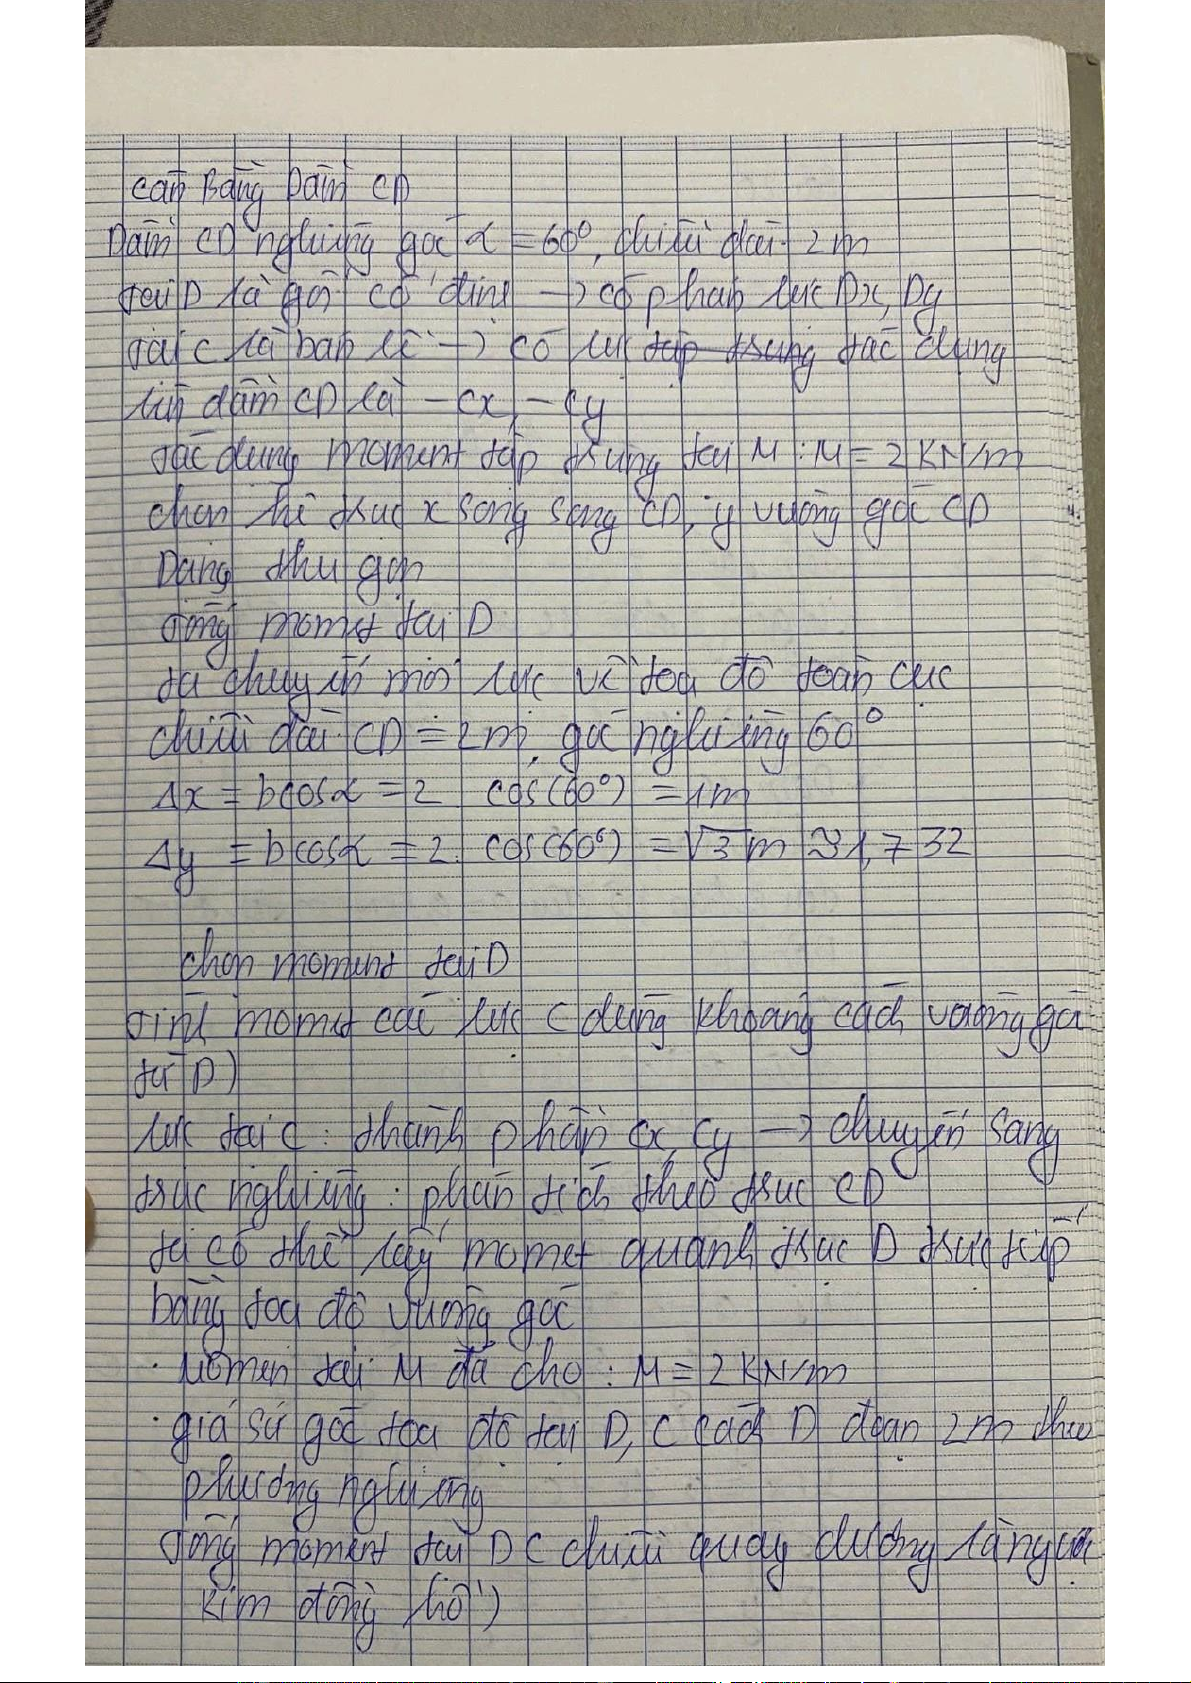 Cân Bằng Dầm CD
Dầm CD nghiêng góc α = 60°, chiều dài 2m
tại D là gối cố định → có phản lực Dx, Dy
tại C là bản lề → có lực tập trung tác dụng
lên dầm CD là -Cx, -Cy
tác dụng moment tập trung tại M : M = 2 KN/m
chọn hệ trục x song song CD, y vuông góc CD
Dạng thu gọn
tổng momet tại D
ta chuyển mọi lực về tọa độ toàn cục
chiều dài CD = 2m, góc nghiêng 60°
Δx = bcosα = 2 cos(60°) = 1m
Δy = bcosα = 2. cos(60°) = √3 m ≈ 1,732
chọn moment tại D
tính momet các lực C dùng khoảng cách vuông gó
từ D)
lực tại C : thành phần Cx, Cy → chuyển sang
trục nghiêng : phân tích theo trục CD
ta có thể lấy momet quanh trục D trực tiếp
bằng tọa độ vuông góc
. Momen tại M đã cho : M = 2 KN/m
. giả sử gốc tọa độ tại D, C cách D đoạn 2m theo
phương nghiêng
tổng moment tại D ( chiều quay dương là ngược
kim đồng hồ )